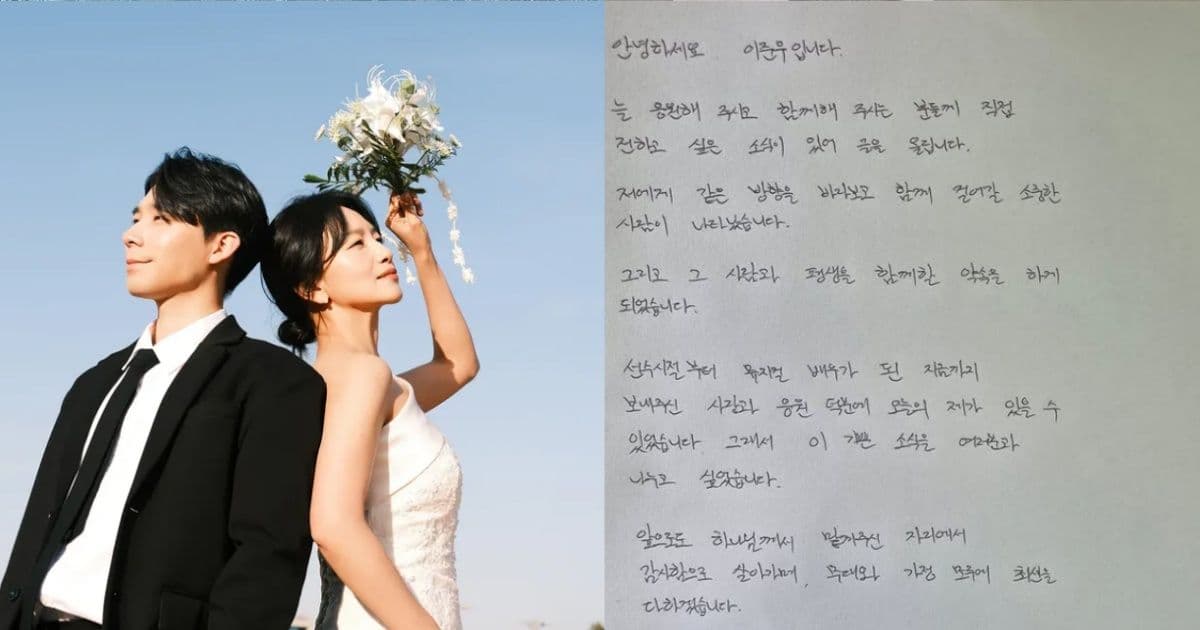 안녕하세요 이준무입니다.
늘 응원해 주시고 함께해 주시는 분들께 직접
전하고 싶은 소식이 있어 글을 올립니다.
저에게 같은 방향을 바라보고 함께 걸어갈 소중한
사람이 나타났습니다.
그리고 그 사람과 평생을 함께할 약속을 하게
되었습니다.
선수시절부터 뮤지컬 배우가 된 지금까지
보내주신 사랑과 응원 덕분에 오늘의 제가 있을 수
있었습니다 그래서 이 기쁜 소식을 여러분과
나누고 싶었습니다.
앞으로도 하나님께서 맡겨주신 자리에서
감사함으로 살아가며, 무대와 가정 모두에 최선을
다하겠습니다.